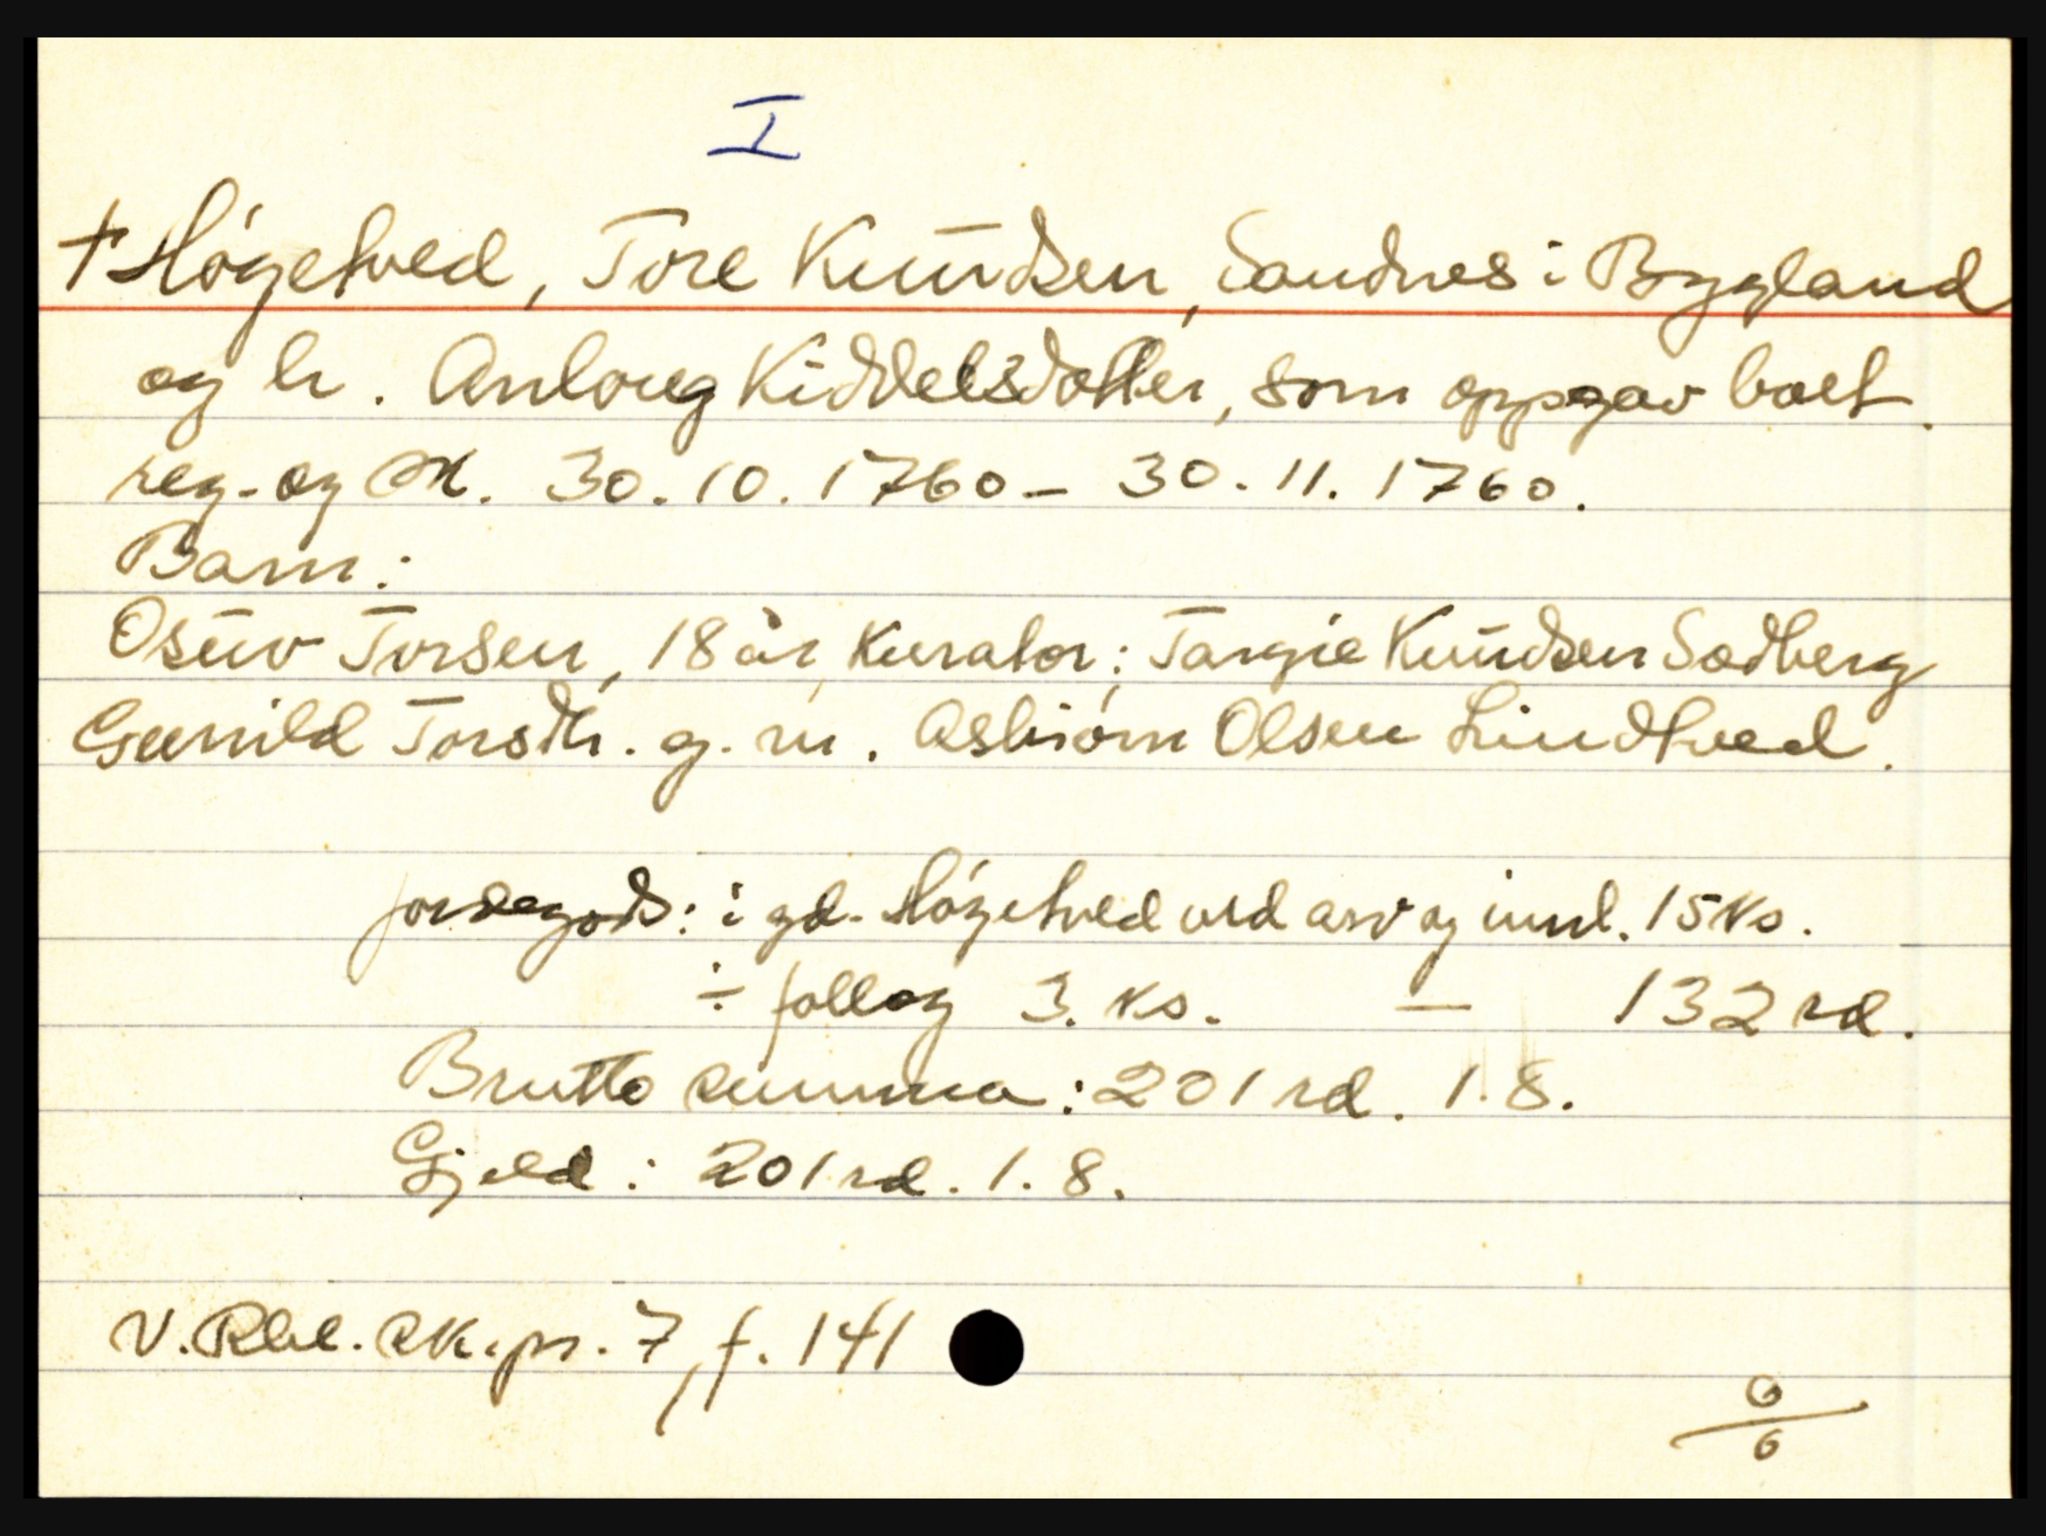 I
† Høgetved, Tore Knudsen, Sandnes i Bygland
og h. Anloug Kiddelsdotter, som oppgav boet.
reg.- og sk. 30.10.1760 - 30.11.1760.
Barn:
Osuv Torsen, 18 år, Kurator: Targie Knudsen Sødberg
Gunild Torsdtr. g. m. Asbiørn Olsen Lindtved.
jordegods: i gd. Høgetved ved arv og innl. 15 ks.
÷ follog 3. ks. — 132 rd.
Brutto summa: 201 rd. 1.8.
Gjeld: 201 rd. 1. 8.
V. Rbl. sk.pr. 7, f. 141
0/0